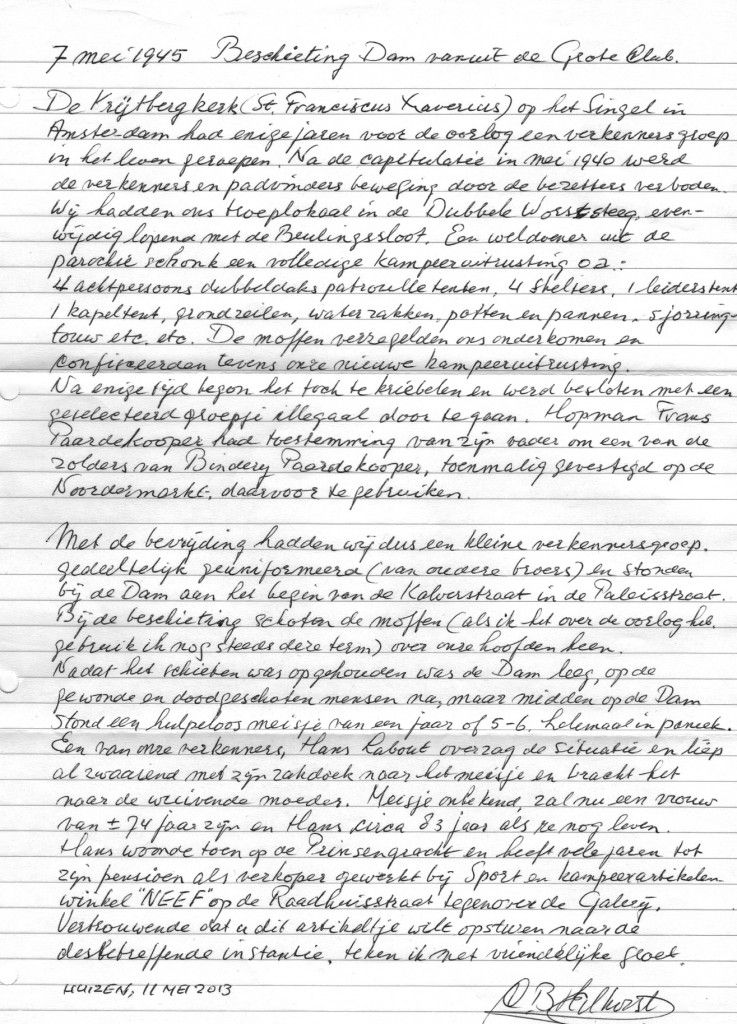 7 mei 1945 Beschieting Dam vanuit de Grote Club.
De Krijtbergkerk (St. Franciscus Xaverius) op het Singel in
Amsterdam had enige jaren voor de oorlog een verkennersgroep
in het leven geroepen. Na de capitulatie in mei 1940 werd
de verkenners en padvinders beweging door de bezetters verboden.
Wij hadden ons troeplokaal in de Dubbele Worststeeg, even-
wijdig lopend met de Beulingssloot. Een weldoener uit de
parochie schonk een volledige kampeeruitrusting o a :
4 achtpersoons dubbeldaks patrouilletenten, 4 shelters, 1 leiderstent
1 kapeltent, grondzeilen, waterzakken, potten en pannen, sjorring-
touw etc. etc. De moffen verzegelden ons onderkomen en
confisceerden tevens onze nieuwe kampeeruitrusting.
Na enige tijd begon het toch te kriebelen en werd besloten met een
geselecteerd groepje illegaal door te gaan. Hopman Frans
Paardekooper had toestemming van zijn vader om een van de
zolders van Bindery Paardekooper, toenmalig gevestigd op de
Noordermarkt, daarvoor te gebruiken.
Met de bevrijding hadden wij dus een kleine verkennersgroep.
gedeeltelijk geuniformeerd (van oudere broers) en stonden
bij de Dam aan het begin van de Kalverstraat in de Paleisstraat.
Bij de beschieting schoten de moffen (als ik het over de oorlog heb.
gebruik ik nog steeds deze term) over onze hoofden heen.
Nadat het schieten was opgehouden was de Dam leeg, op de
gewonde en doodgeschoten mensen na, maar midden op de Dam
stond een hulpeloos meisje van een jaar of 5-6. helemaal in paniek.
Een van onze verkenners, Hans Labout overzag de situatie en liep
al zwaaiend met zijn zakdoek naar het meisje en bracht het
naar de wuivende moeder. Meisje onbekend, zal nu een vrouw
van ± 74 jaar zijn en Hans circa 83 jaar als ze nog leven.
Hans woonde toen op de Prinsengracht en heeft vele jaren tot
zijn pensioen als verkoper gewerkt bij Sport en kampeerartikelen-
winkel "NEEF" op de Raadhuisstraat tegenover de Galerij.
Vertrouwende dat u dit artikeltje wilt opsturen naar de
desbetreffende instantie, teken ik met vriendelijke groet.
HUIZEN, 11 MEI 2013